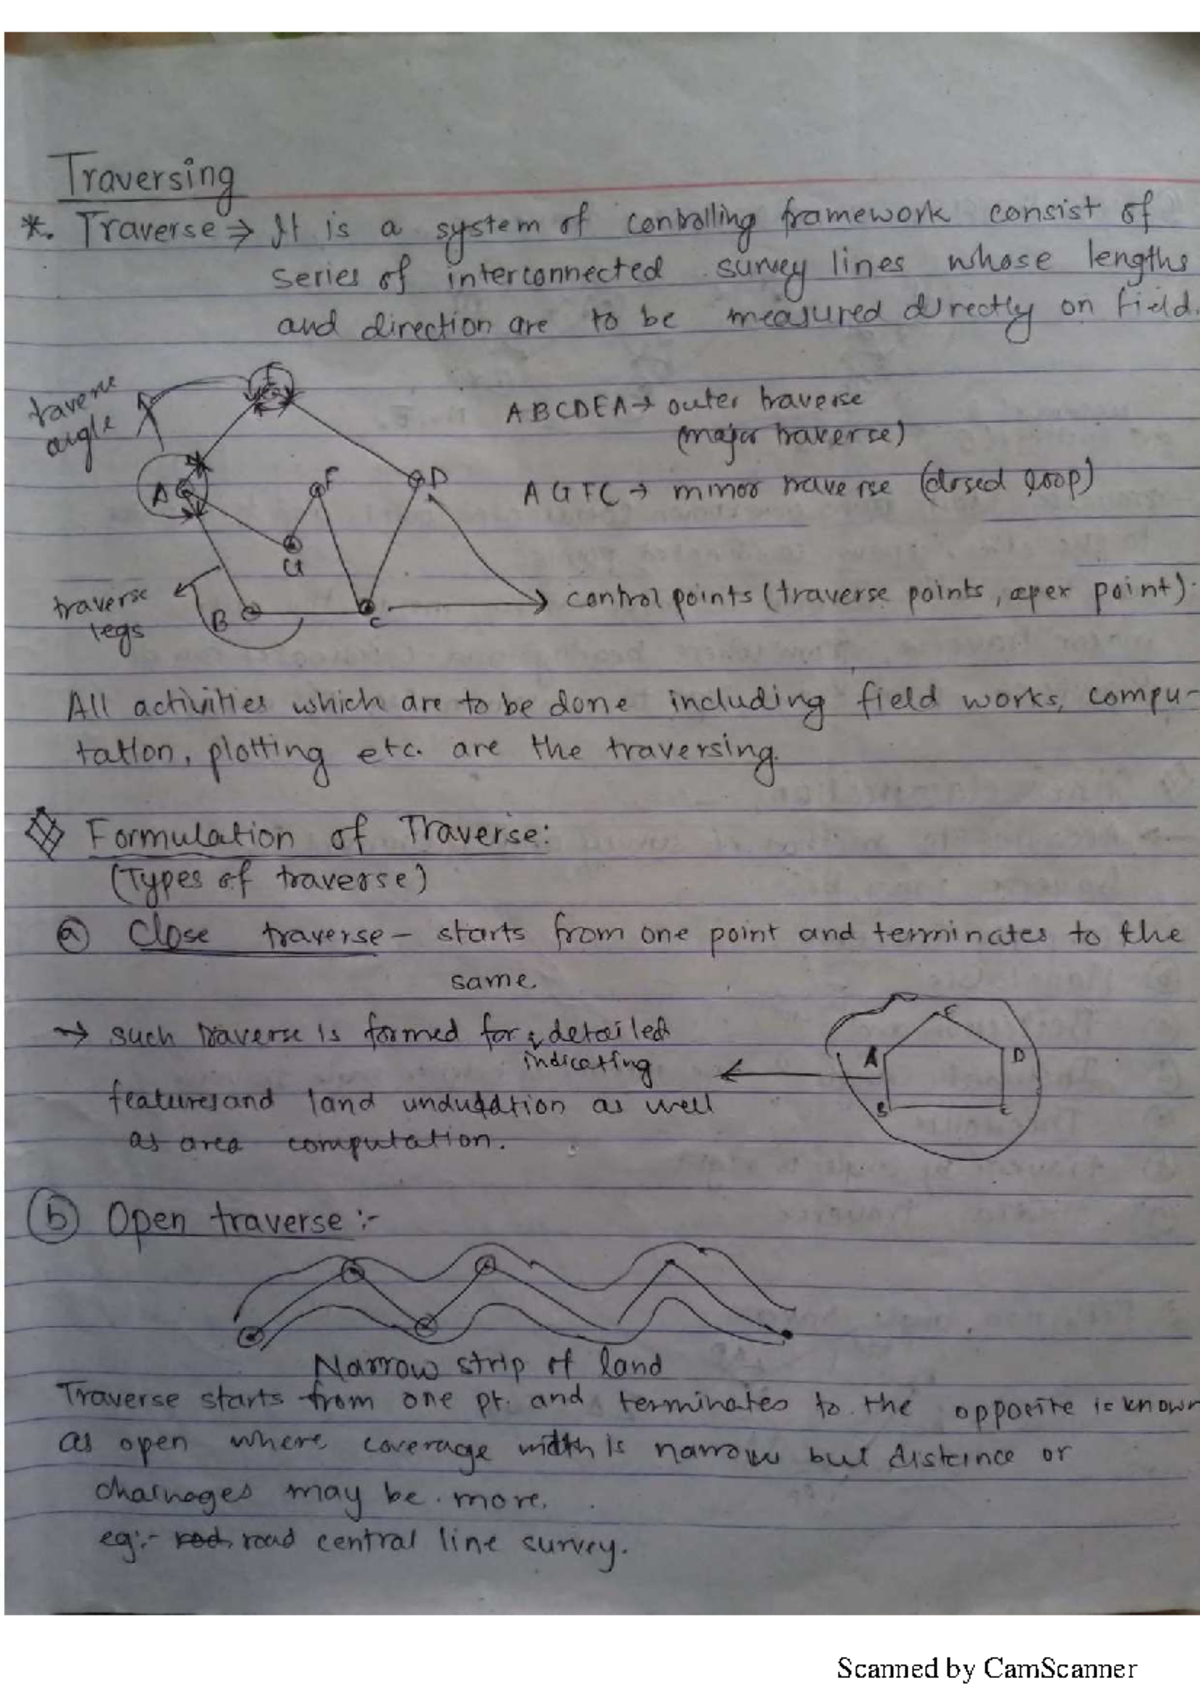 Traversing
*. Traverse → It is a system of controlling framework consist of
series of interconnected survey lines whose lengths
and direction are to be measured directly on field.
traverse
angle
E
A
F
D
G
B
C
traverse
legs
ABCDEA → outer traverse
(major traverse)
AGFC → minor traverse (closed loop)
control points (traverse points, apex point).
All activities which are to be done including field works, compu-
tation, plotting etc. are the traversing.
Formulation of Traverse:
(Types of traverse)
(a) Close traverse - starts from one point and terminates to the
same.
→ such traverse is formed for detailed
indicating
features and land undulation as well
as area computation.
A
E
D
B
C
(b) Open traverse :-
Narrow strip of land
Traverse starts from one pt. and terminates to the opposite is known
as open where coverage width is narrow but distance or
chainages may be more.
eg:- road central line survey.
Scanned by CamScanner